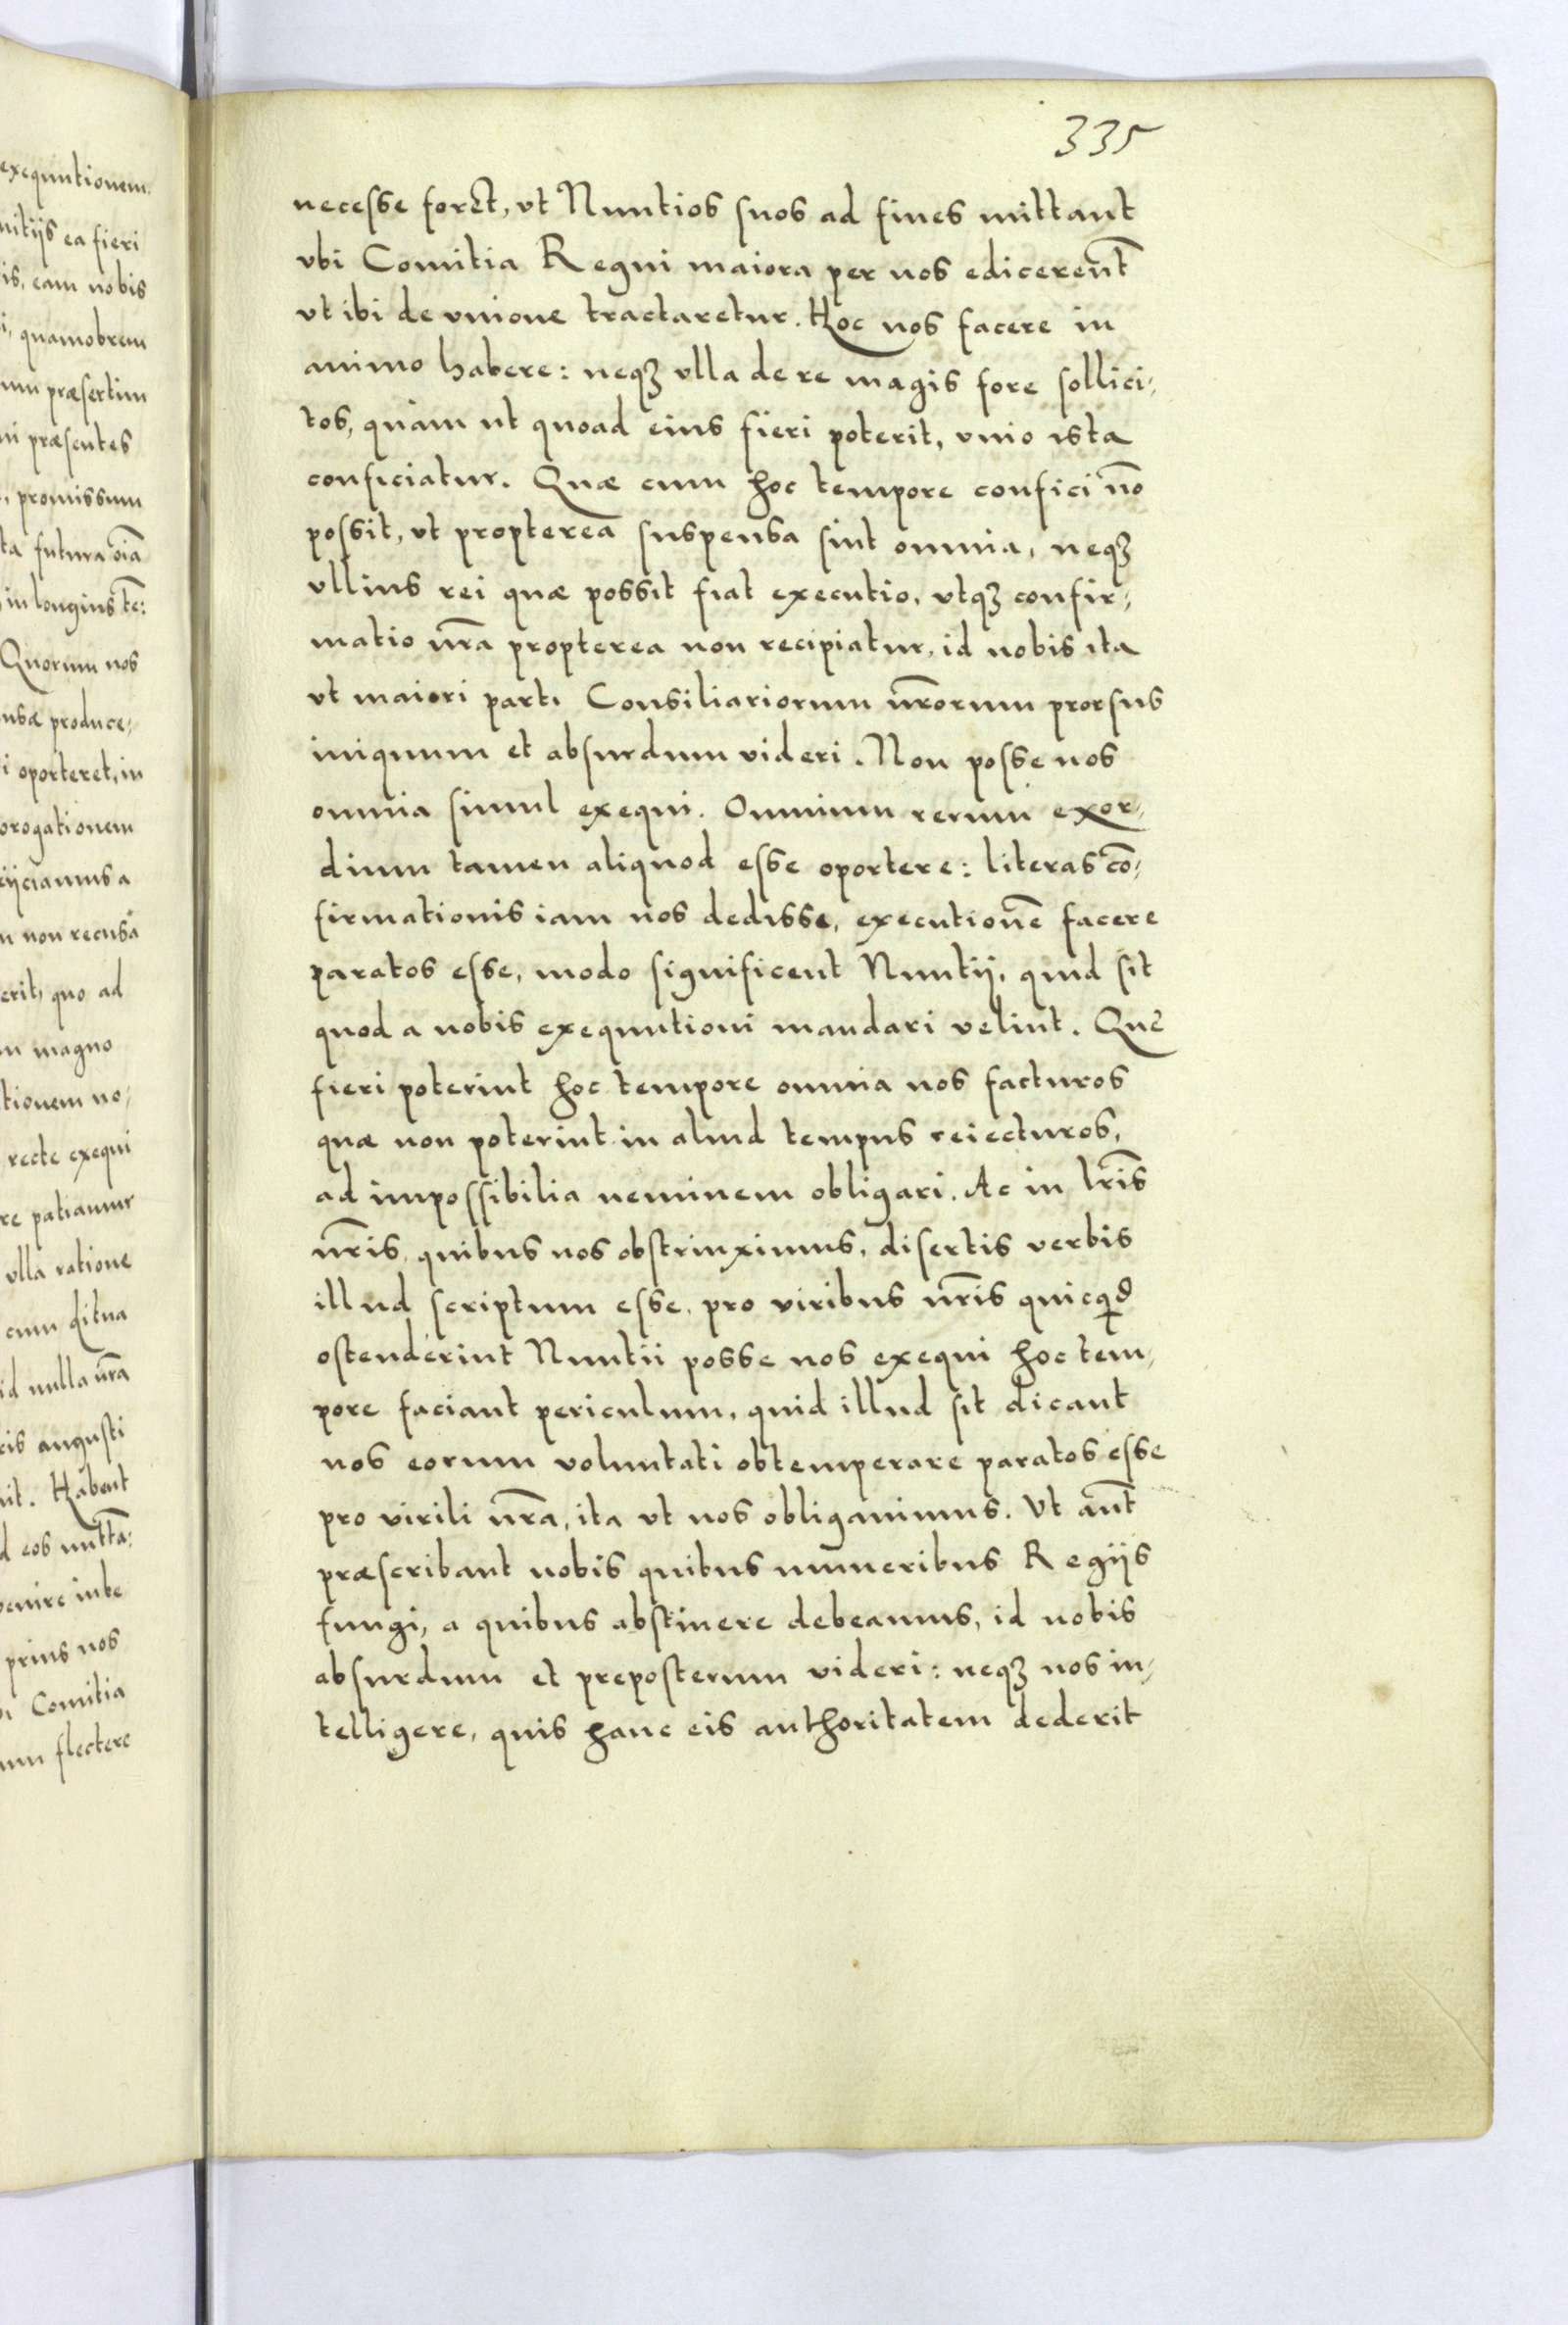 335
necesse foret, vt Nuntios suos ad fines mittant
vbi Comitia Regni maiora per nos edicerent̃
vt ibi de vnione tractaretur. Hoc nos facere in
animo habere: neqꝫ vlla de re magis fore sollici-
tos, quàm ut quoad eius fieri poterit, vnio ista
conficiatur. Quæ cum hoc tempore confici nō
possit, vt propterea suspensa sint omnia, neqꝫ
vllius rei quæ possit fiat executio, vtqꝫ confir-
matio nr̃a propterea non recipiatur, id nobis ita
vt maiori parti Consiliariorum nr̃orum prorsus
iniquum et absurdum videri. Non posse nos
omnia simul exequi. Omnium rerum exor-
dium tamen aliquod esse oportere: literas cō-
firmationis iam nos dedisse, executionē facere
paratos esse, modo significent Nuntij, quid sit
quod a nobis exequutioni mandari velint. Quę
fieri poterint hoc tempore omnia nos facturos
quæ non poterint in aliud tempus reiecturos,
ad impossibilia neminem obligari. Ac in lr̃is
nr̃is, quibus nos obstrinximus, disertis verbis
illud scriptum esse, pro viribus nr̃is quicqꝫd
ostenderint Nuntii posse nos exequi hoc tem-
pore faciant periculum, quid illud sit dicant
nos eorum voluntati obtemperare paratos esse
pro virili nr̃a, ita vt nos obligauimus. Vt aut̃
præscribant nobis quibus muneribus Regijs
fungi, a quibus abstinere debeamus, id nobis
absurdum et preposterum videri: neqꝫ nos in-
telligere, quis hanc eis authoritatem dederit
exequutionem
nitijs ea fieri
is, eam nobis
i, quamobrem
um præsertim
ni præsentes
, promissum
ta futura oīa
in longius tē:
Quorum nos
nsæ produce-
i oporteret, in
orogationem
eijciamus a
n non recusa
erit, quo ad
m magno
tionem no-
recte exequi
re patiamur
vlla ratione
cum ditua
id nulla nr̃a
ris augusti
nit. Habent
d eos mittā:
venire iube
prius nos
i Comitia
um flectere